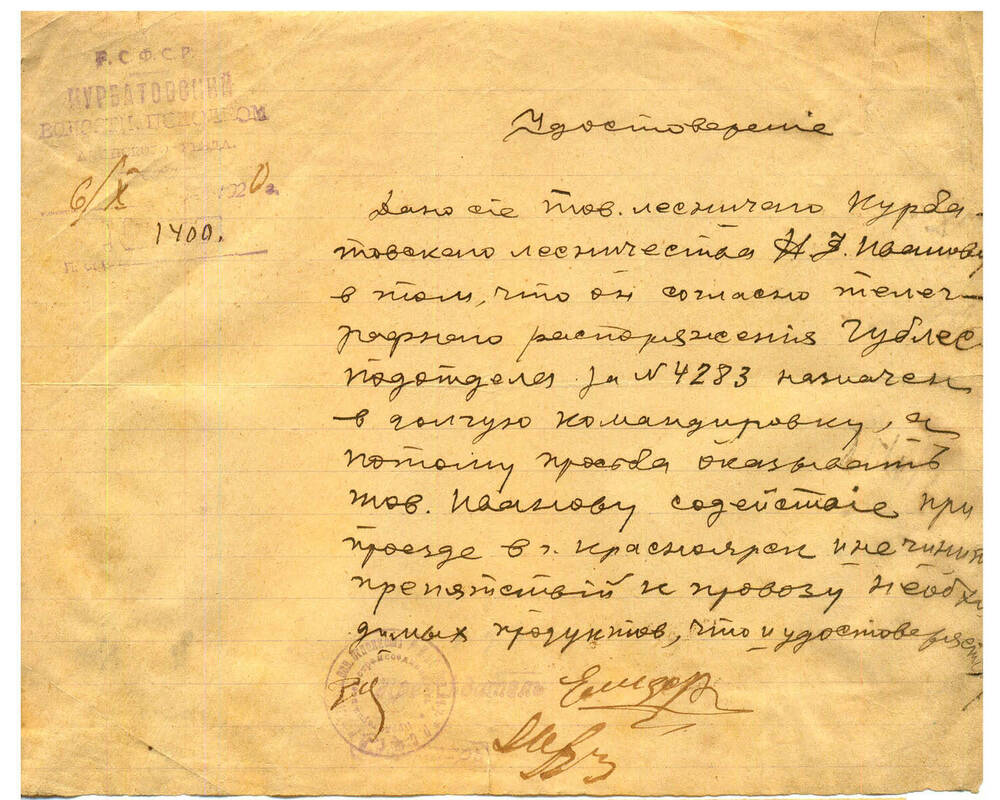 Р.С.Ф.С.Р.
КУРБАТОВСКИЙ
ВОЛОСТН. ИСПОЛКОМ
УЕЗДА.
6/X 1920 г.
1400.
Удостоверение
Дано сіе тов. лесничаго Курба-
товскаго лесничества Н. Иванову
в том, что он согласно телег-
рафнаго распоряжения Гублес
подотдела за № 4283 назначен
в долгую командировку, а
потому просьба оказывать
тов. Иванову содействіе при
проезде в г. Красноярск и не чинить
препятствій к провозу необхо
димых продуктов, что и удостоверяется
Председатель